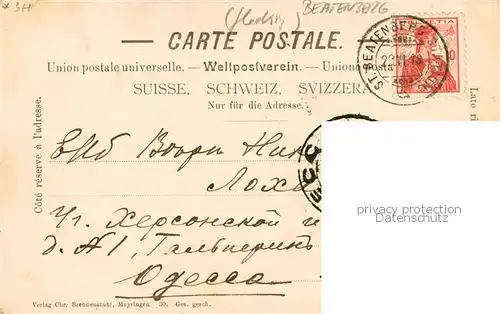 * 3H
BEATENBERG
CARTE POSTALE.
Union postale universelle. — Weltpostverein. — Unione posta
SUISSE. SCHWEIZ. SVIZZERA
Nur für die Adresse.
Côté réservé à l'adresse.
Lato ri
HELVETIA
10
ST. BEATENBERG
Лоха
Уг. Херсонской и
д. №1, Гальперинъ
Одесса
privacy protection
www.oldthing.de
Verlag Chr. Brennenstuhl, Meyringen. 30. Ges. gesch.